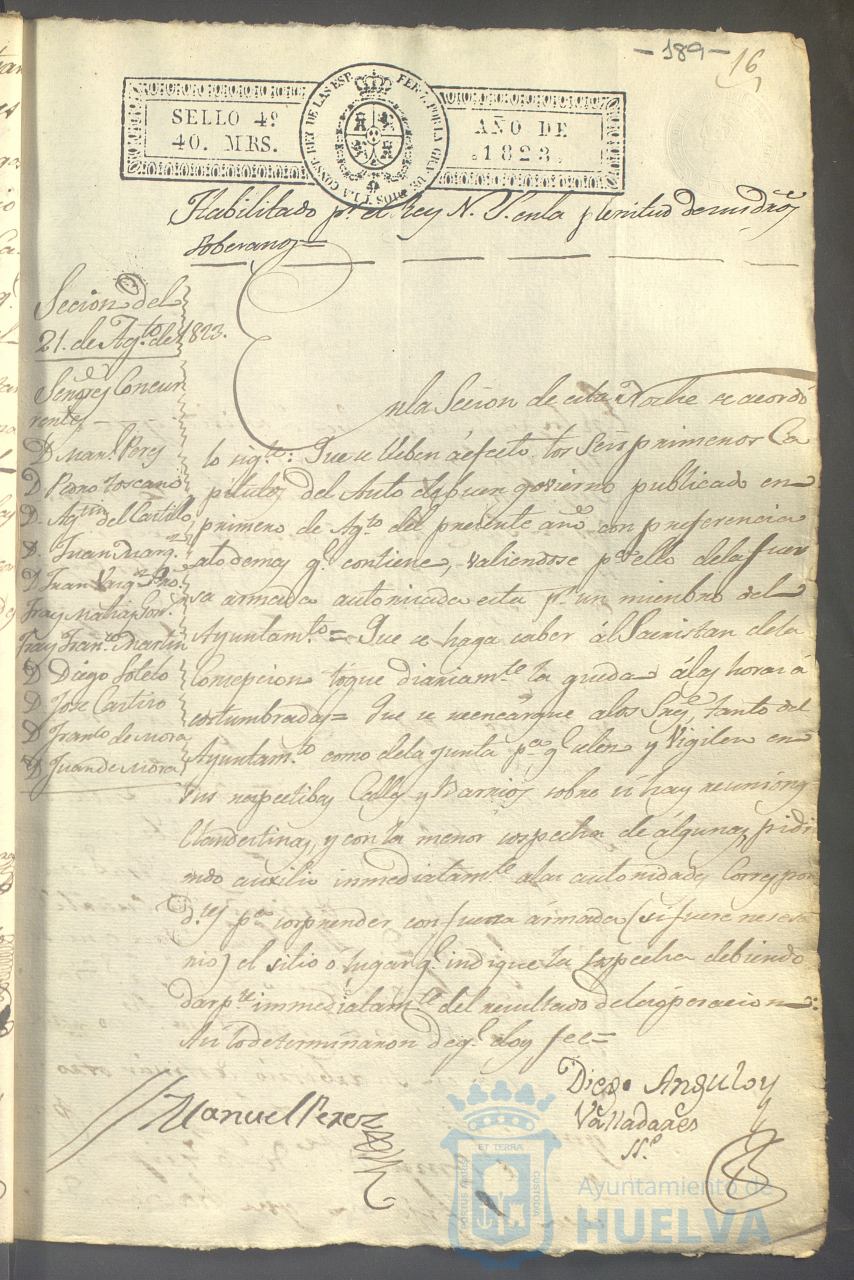 - 189 -
16
SELLO 4º
40. MRS.
FERN. POR LA GRA. DE DIOS Y LA CONST. REY DE LAS ESP.
AÑO DE
1823.
Habilitado pr. el Rey N. S. en la plenitud de sus dros
soberanos=
Secion del
21. de Agto. de 1823.
Señores Concur
rentes
D Manl. Perez
D Pedro Toscano
D. Agtin del Castillo
D. Juan Quarz
D Juan
Fray Matias
Fray Franco Martin
D Diego Sotelo
D Jose Castiro
D Franco de Mora
D Juan de Mora
En la Secion de esta Noche se acordó
lo sigte: Que se lleben á efecto, los Seis primeros Ca
pitulos del Auto de buen govierno publicado en
primero de Agto del presente año con preferencia
alo demas q. contiene, valiendose pa ello dela fuer
sa armada autorisada esta pr. un miembro del
Ayuntamto= Que se haga saber ál Sacristan dela
Consepcion tóque diariamte la queda álas horas á
costumbradas= Que se reencargue alos Sres, tanto del
Ayuntamto como dela junta pa q. selen y Vigilen en
sus respectibas Calles y Barrios sobre si hay reuniones
Clandestinas, y con la menor sospecha de álguna, pidi
endo auxilio inmediatamte alas autoridades Correspon
dtes pa sorprender con fuerza ármada (si fuere nesesa
rio) el sitio o lugar q. indique la sospecha debiendo
dar pte immediátamte del resultado dela óperacion=:
Asi lo determinaron de q. doy fee=
Manuel Perez
Diego Anguloy
Valladares
SSº
ET TERRA
PORTUS MARIS
CUSTODIA
Ayuntamiento de
HUELVA